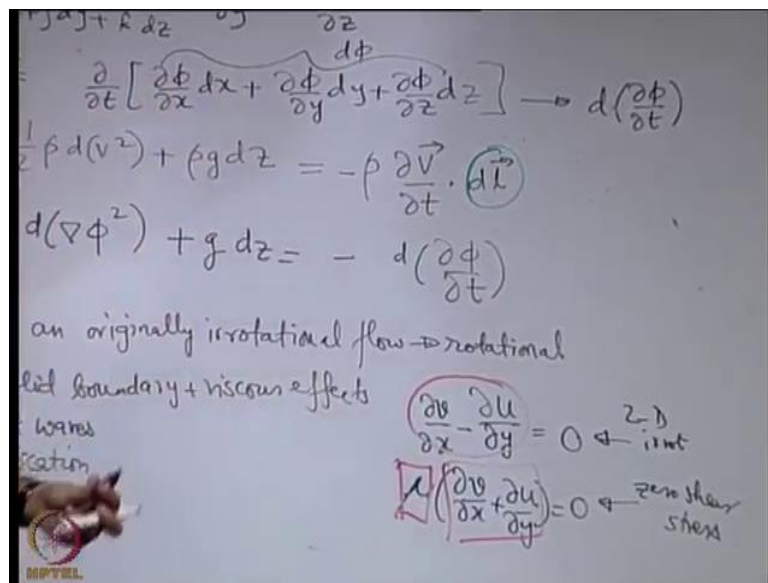 + k dz
∂z
dϕ
∂/∂t [ ∂ϕ/∂x dx + ∂ϕ/∂y dy + ∂ϕ/∂z dz ] → d(∂ϕ/∂t)
1/2 ρ d(v²) + ρg dz = -ρ ∂V⃗/∂t · dl⃗
d(∇ϕ²) + g dz = - d(∂ϕ/∂t)
an originally irrotational flow → rotational
lid boundary + viscous effects
waves
ication
∂v/∂x - ∂u/∂y = 0 ← 2-D irrot
μ(∂v/∂x + ∂u/∂y) = 0 ← zero shear stress
NPTEL